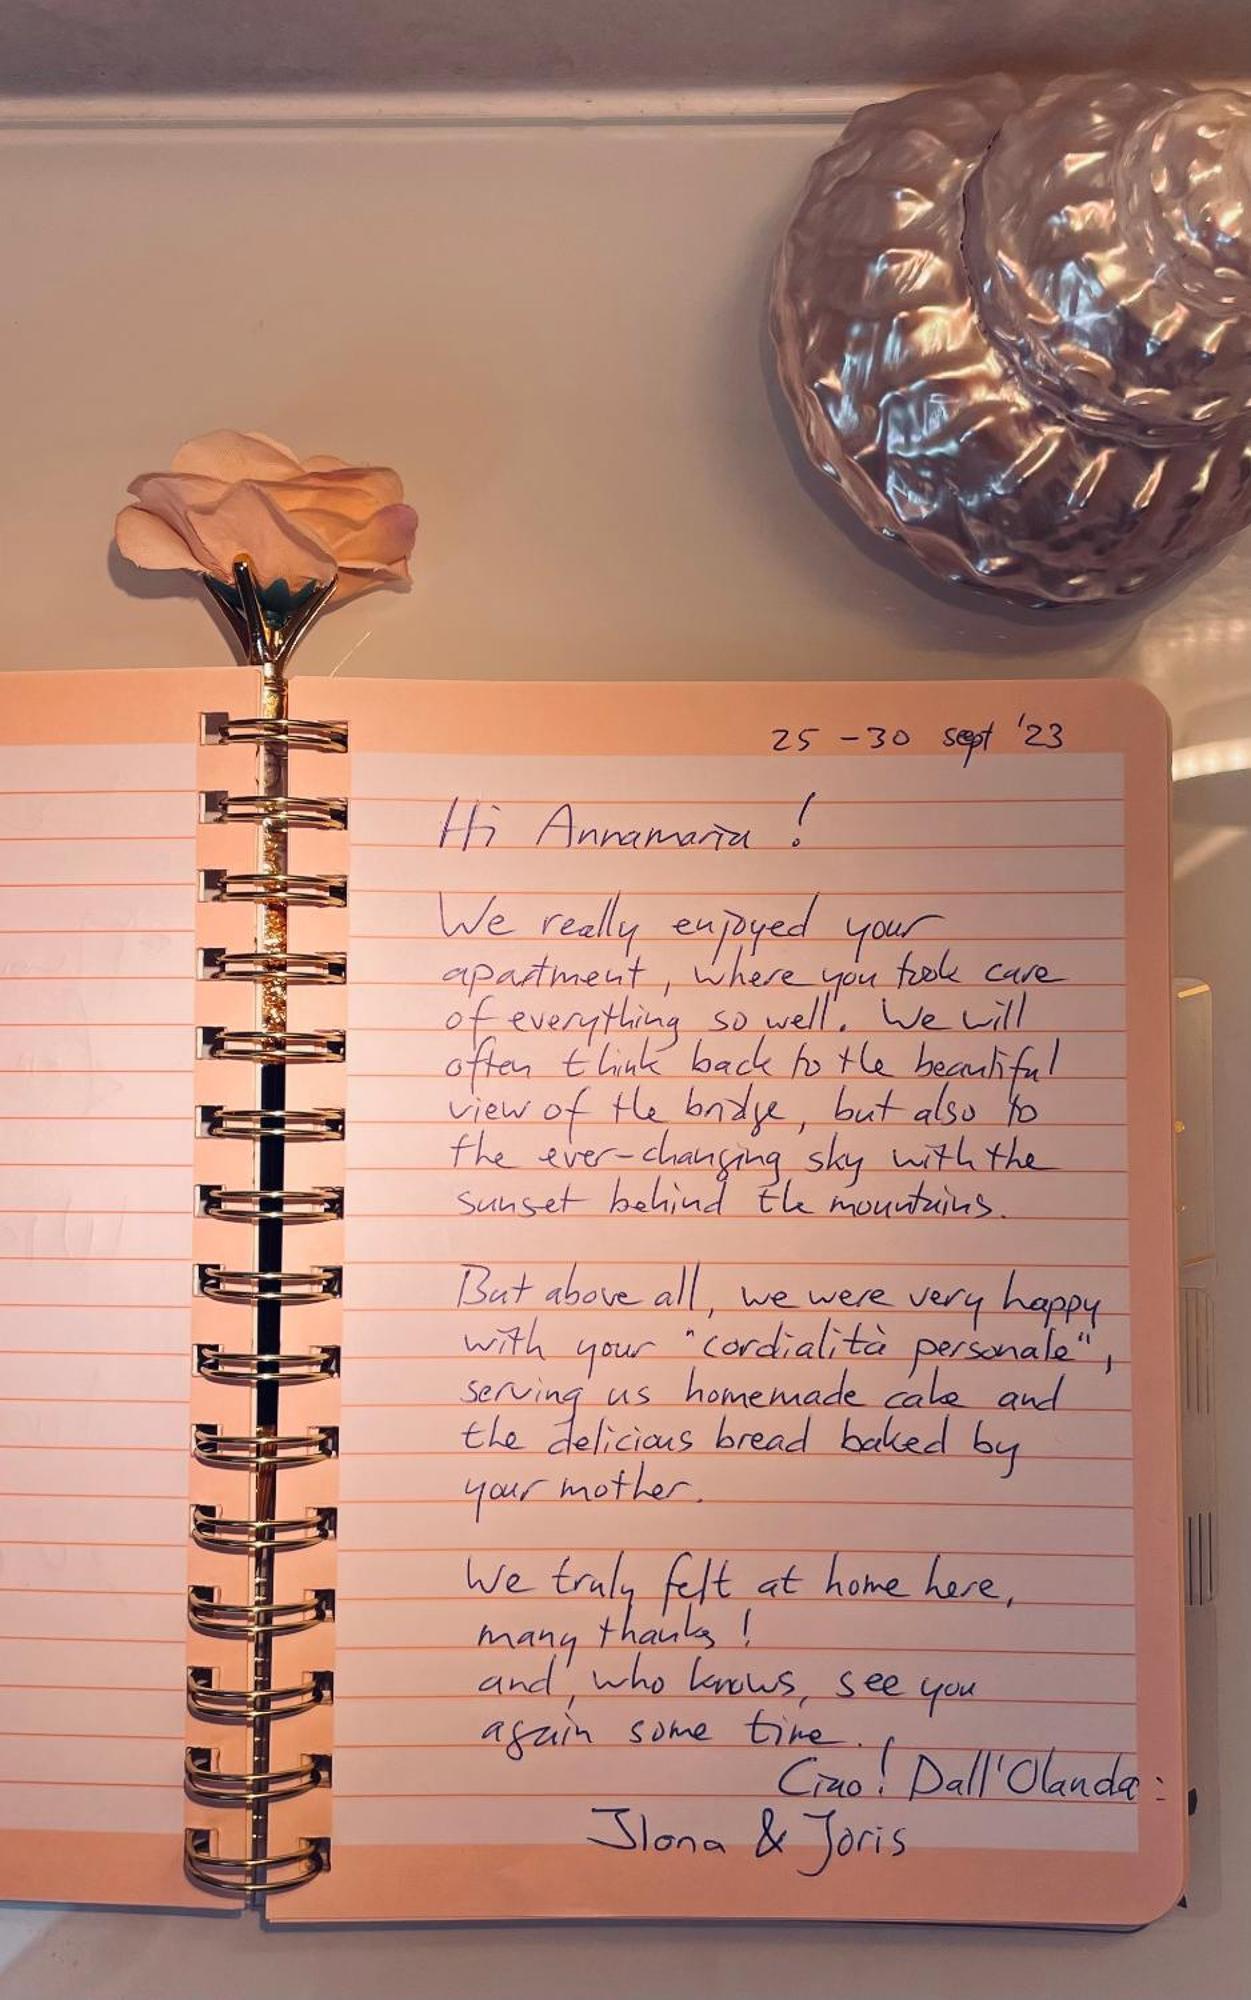 25 - 30 sept '23
Hi Annamaria !
We really enjoyed your
apartment, where you took care
of everything so well. We will
often think back to the beautiful
view of the bridge, but also to
the ever-changing sky with the
sunset behind the mountains.
But above all, we were very happy
with your "cordialità personale",
serving us homemade cake and
the delicious bread baked by
your mother.
We truly felt at home here,
many thanks !
and, who knows, see you
again some time.
Ciao! Dall'Olanda:
Ilona & Joris